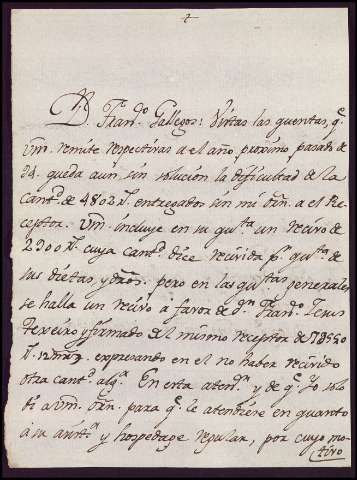 D. Fran.do Gallegos: Vistas las quentas, q.e
Vm. remite respectivas a el año proximo pasado de
24. queda aun sin solución la dificultad de la
cant.d de 4802 r.s entregados sin mi orn. a el Re-
ceptor. Vm. incluye en su qu.ta un recivo de
2200 r.s cuya cant.d dice recivida p.r qu.ta de
sus dietas, y dros. pero en las qu.tas generales
se halla un recivo a favor de d.n Fran.do
Texeiro y firmado del mismo receptor de
r.s expresando en el no haber recivido
otra cant.d alg.a En esta aten.n y de q.e yo solo
di a Vm. orn. para q.e le atendiese en quanto
a su asist.a y hospedage regular, por cuyo mo-
tivo